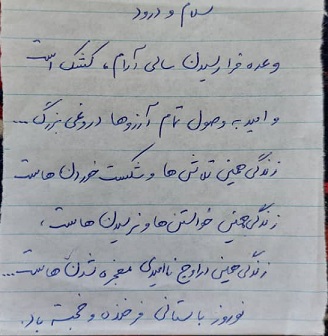 سلام و درود
وعده فرا رسیدن سالی آرام، کشک است
و امید به وصول تمام آرزوها دروغی بزرگ...
زندگی همین تلاش‌ها و شکست خوردن‌هاست
زندگی همین خواستن‌ها و نرسیدن‌هاست،
زندگی همین در اوج ناامیدی معجزه شدن‌هاست...
نوروز باستانی فرخنده و خجسته باد.